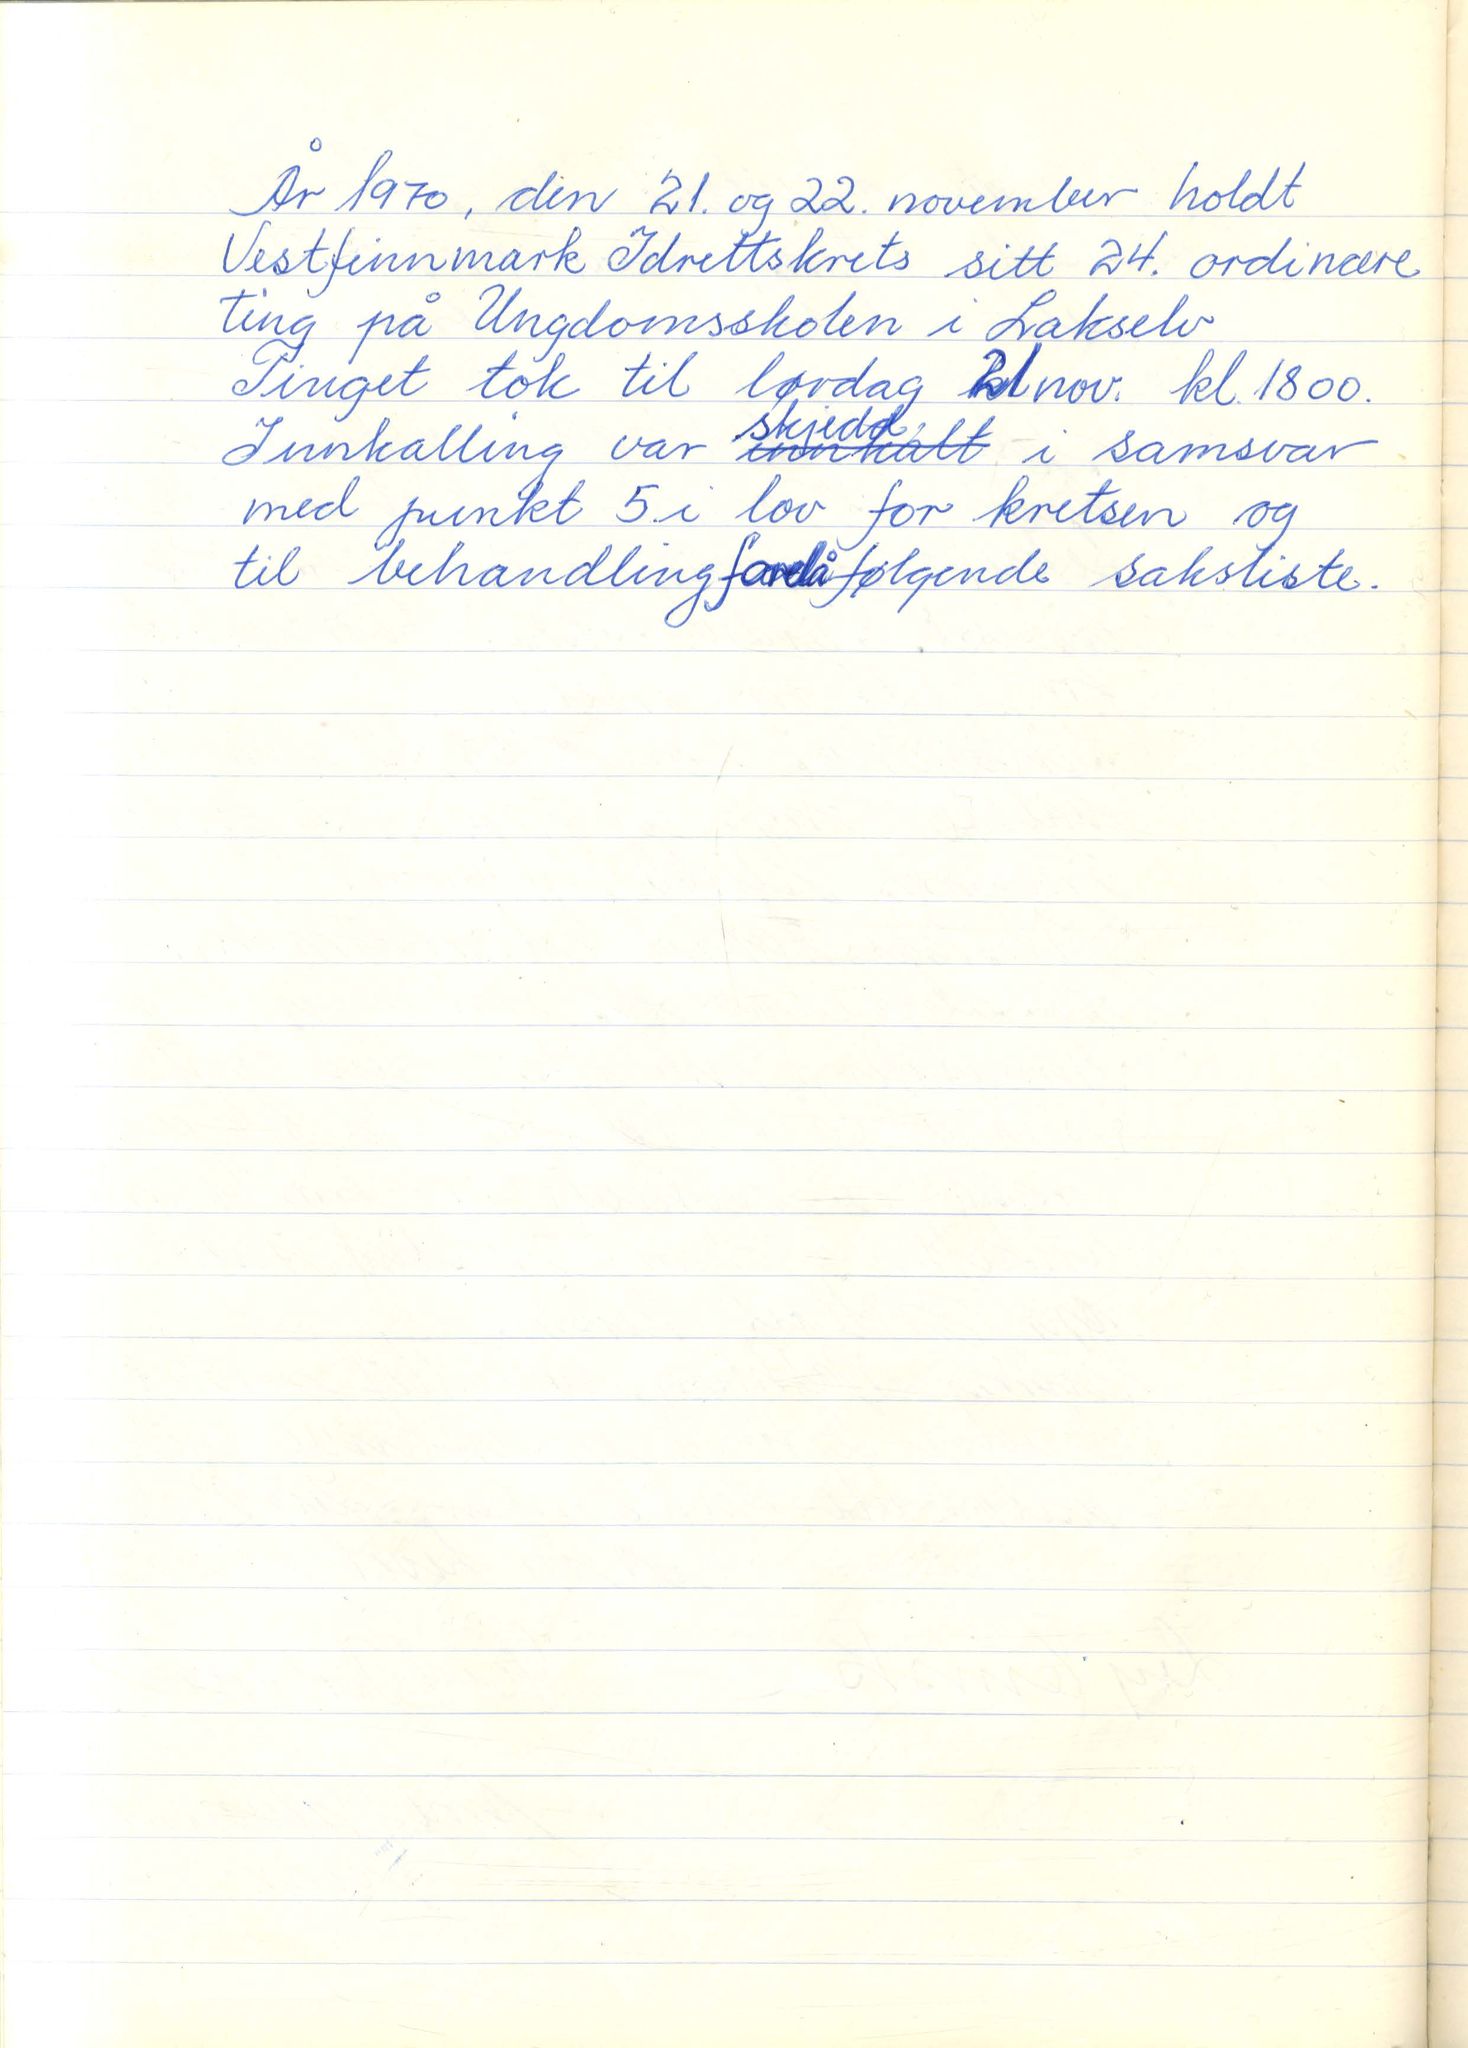 År 1970, den 21. og 22. november holdt
Vestfinnmark Idrettskrets sitt 24. ordinære
ting på Ungdomsskolen i Lakselv
Tinget tok til lørdag 21 nov. kl. 1800.
Innkalling var innkalt skjedd i samsvar
med punkt 5 i lov for kretsen og
til behandling forelå følgende saksliste.